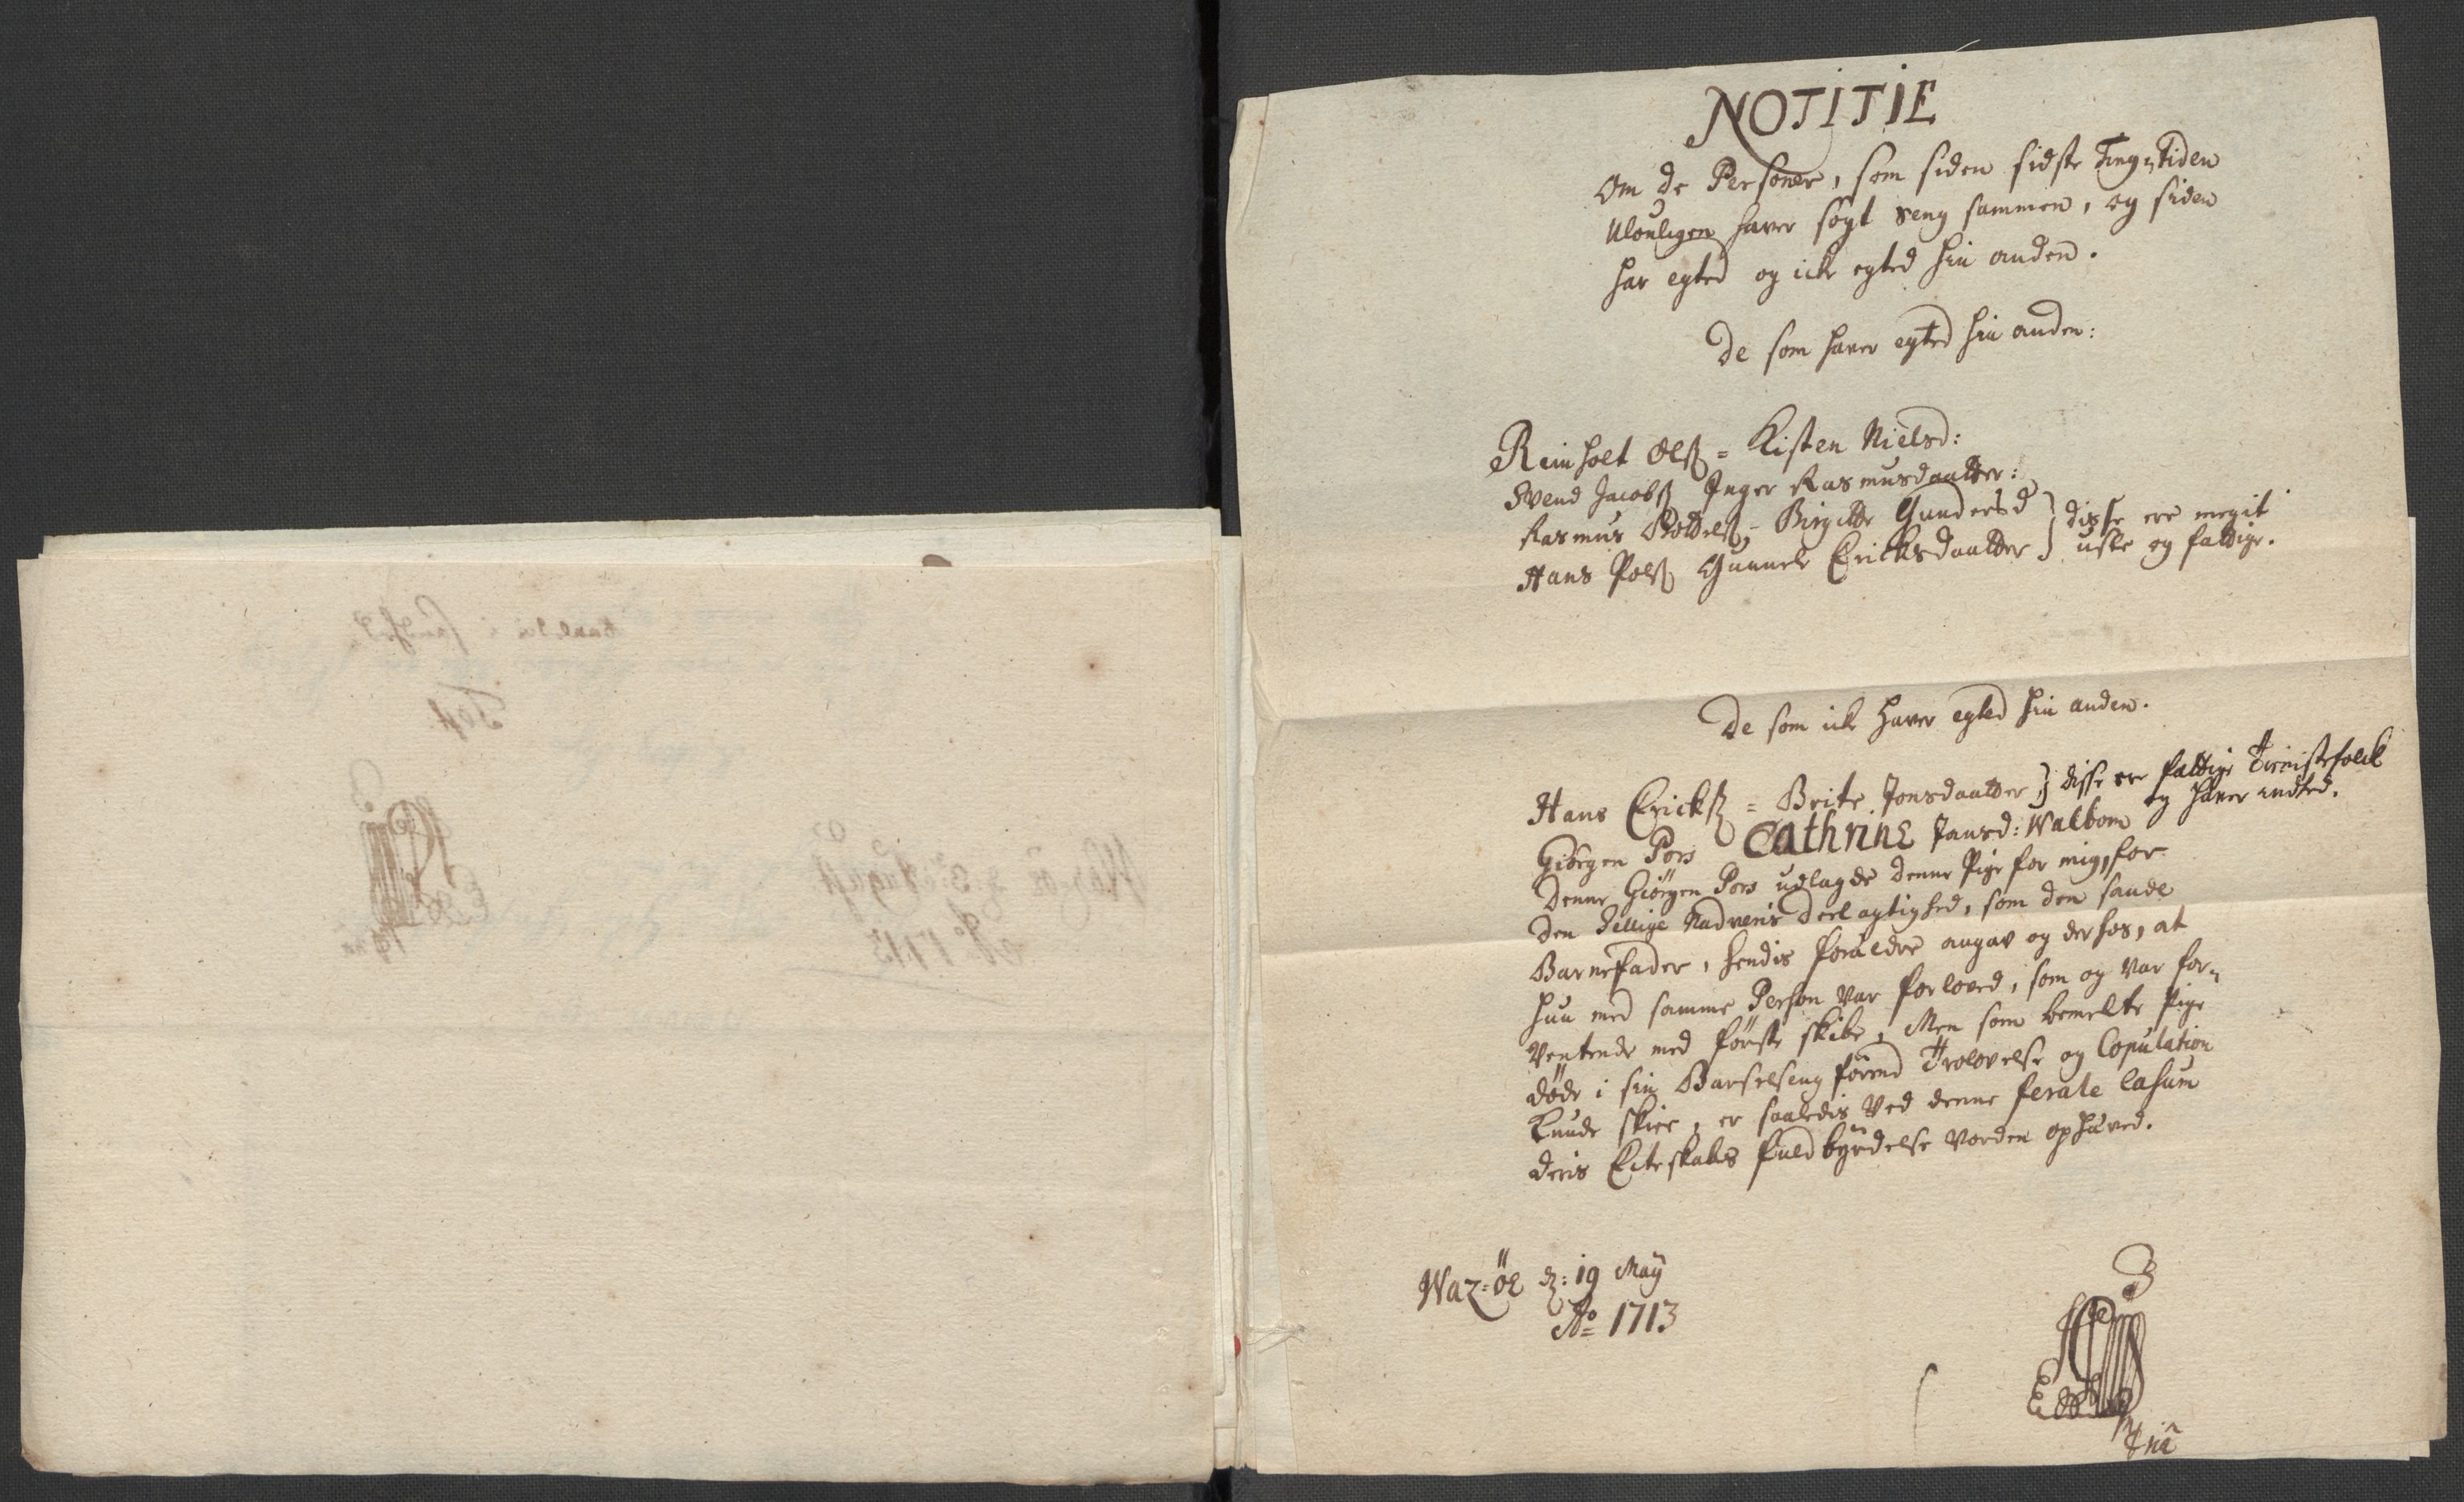 NOTITIE
Om de Personer, som siden sidste Ting-Tiden
Ulouligen haver søgt seng sammen, og siden
har egted og icke egted hin anden.
De som haver egted hin anden:
Reinholt Olß = Kisten Nielsd:
Svend Jacobß Inger Rasmusdaatter:
Rasmus Bottelß, Birgitte Gundersd } disse ere megit
Hans Polß Gunnele Ericksdaatter } usle og fattige.
De som ick haver egted hin anden.
Hans Erickß = Brite Jonsdaatter } disse ere fattige Tienistefolck
og haver indted.
Giörgen Pors Cathrine Jansd: Walbom
Denne Giörgen Pors udlagde denne Pige for mig, for
den hellige Nadveris deelagtighed, som den sande
Barnefader, hendis forældre angav og derhos, at
hun med samme Person var forloved, som og var for-
ventende med förste skibe, Men som bemelte Pige
döde i sin Barselseng förend Trolovelse og Copulation
kunde skiee, er saaledis ved denne ferale Casum
deris Ecteskabs fuldbyrdelse vorden ophæved.
Waz-öe d: 19 Maÿ
Ao 1713